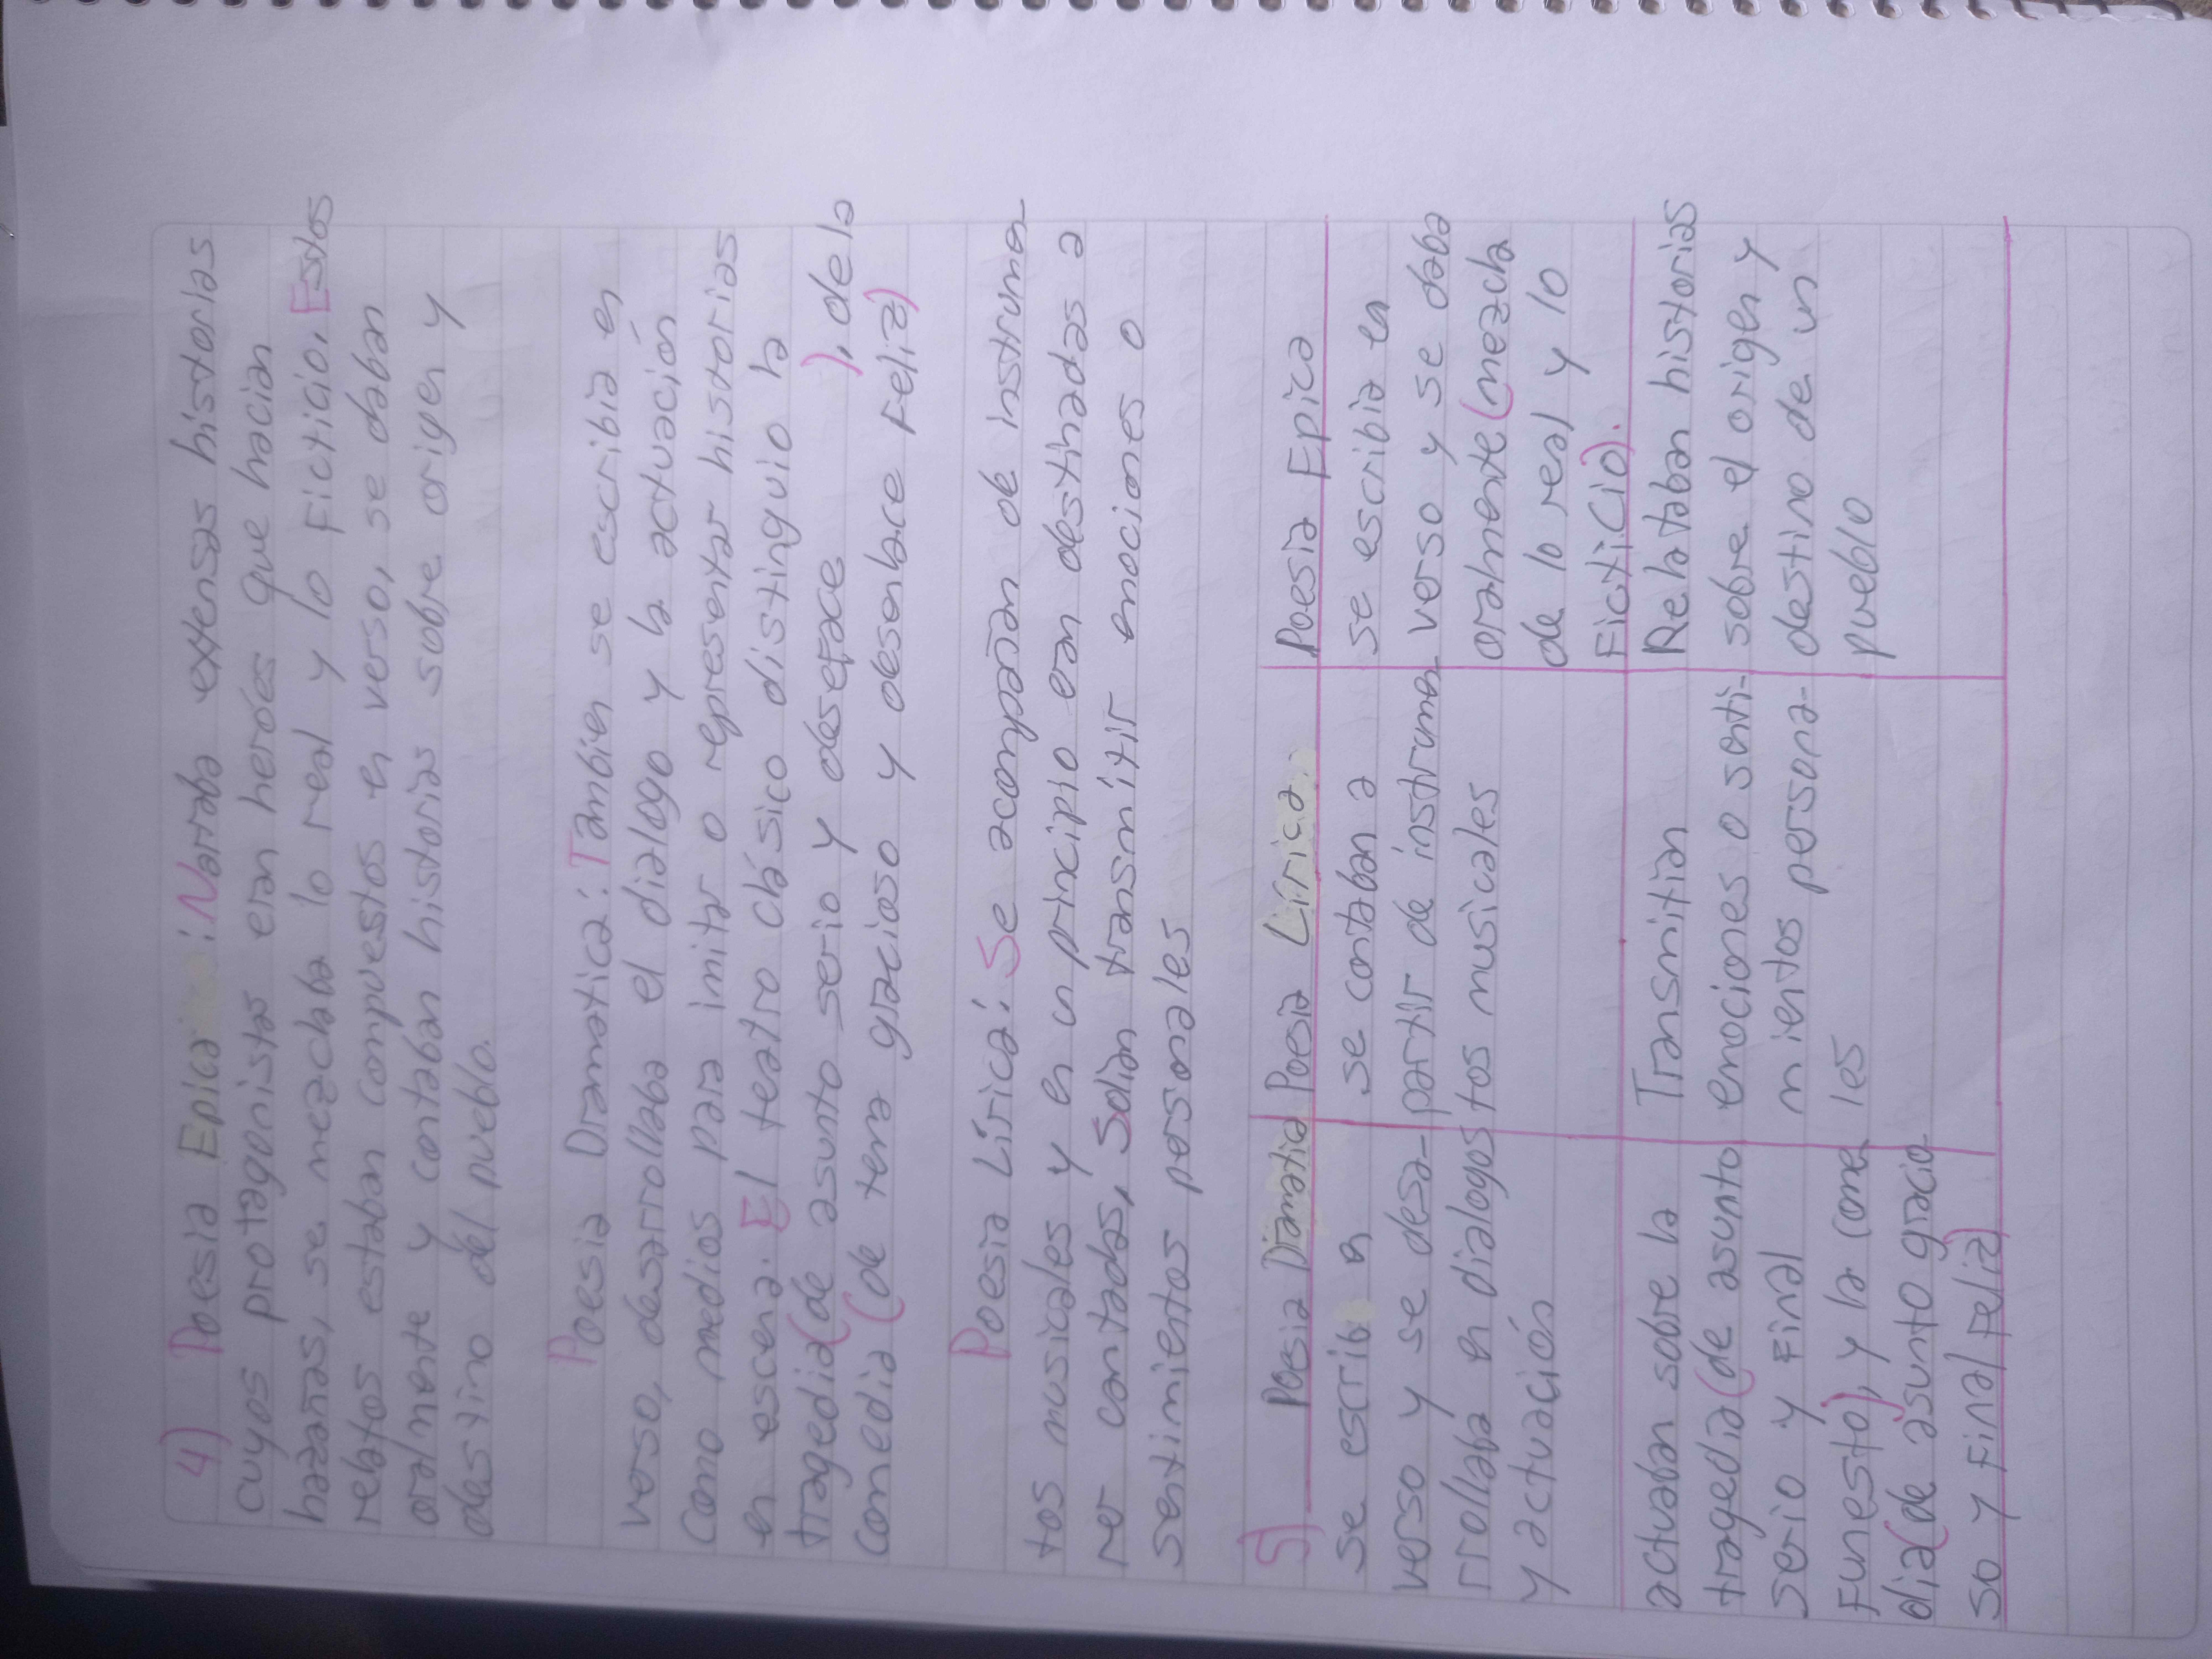 4) Poesia Epica: Narraba extensas historias
cuyos protagonistas eran heroés que hacian
hazañas, se mezclaba lo real y lo Ficticio. Estos
relatos estaban compuestos en verso, se daban
oralmente y contaban historias sobre origen y
destino del pueblo.
Poesia Dramatica: Tambien se escribia en
verso, desarrollaba el dialogo y la actuación
Como medios para imitar o representar historias
en escena. El teatro clásico distinguio la
tragedia (de asunto serio y deseface ), de la
comedia (de tema gracioso y desenlace Feliz)
Poesia Lírica: Se acompañan de instrumen
tos musicales y en un principio eran destinadas a
ser cantadas, Solian transmitir emociones o
sentimientos personales
5) Poesia Dramatica Poesia Lírica Poesia Epica
se escrib en se contaban a se escribia en
verso y se desa- partir de instrumen verso y se daba
rrollaba en dialogos tos musicales oralmente (mezcla
y actuación de lo real y lo
FictiCio).
actuaban sobre la Transmitian Relataban historias
tragedia (de asunto emociones o senti- sobre el origen y
serio y Final mientos persona- destino de un
Funesto), y la come les pueblo
dia (de asunto gracio
so y Final Feliz)